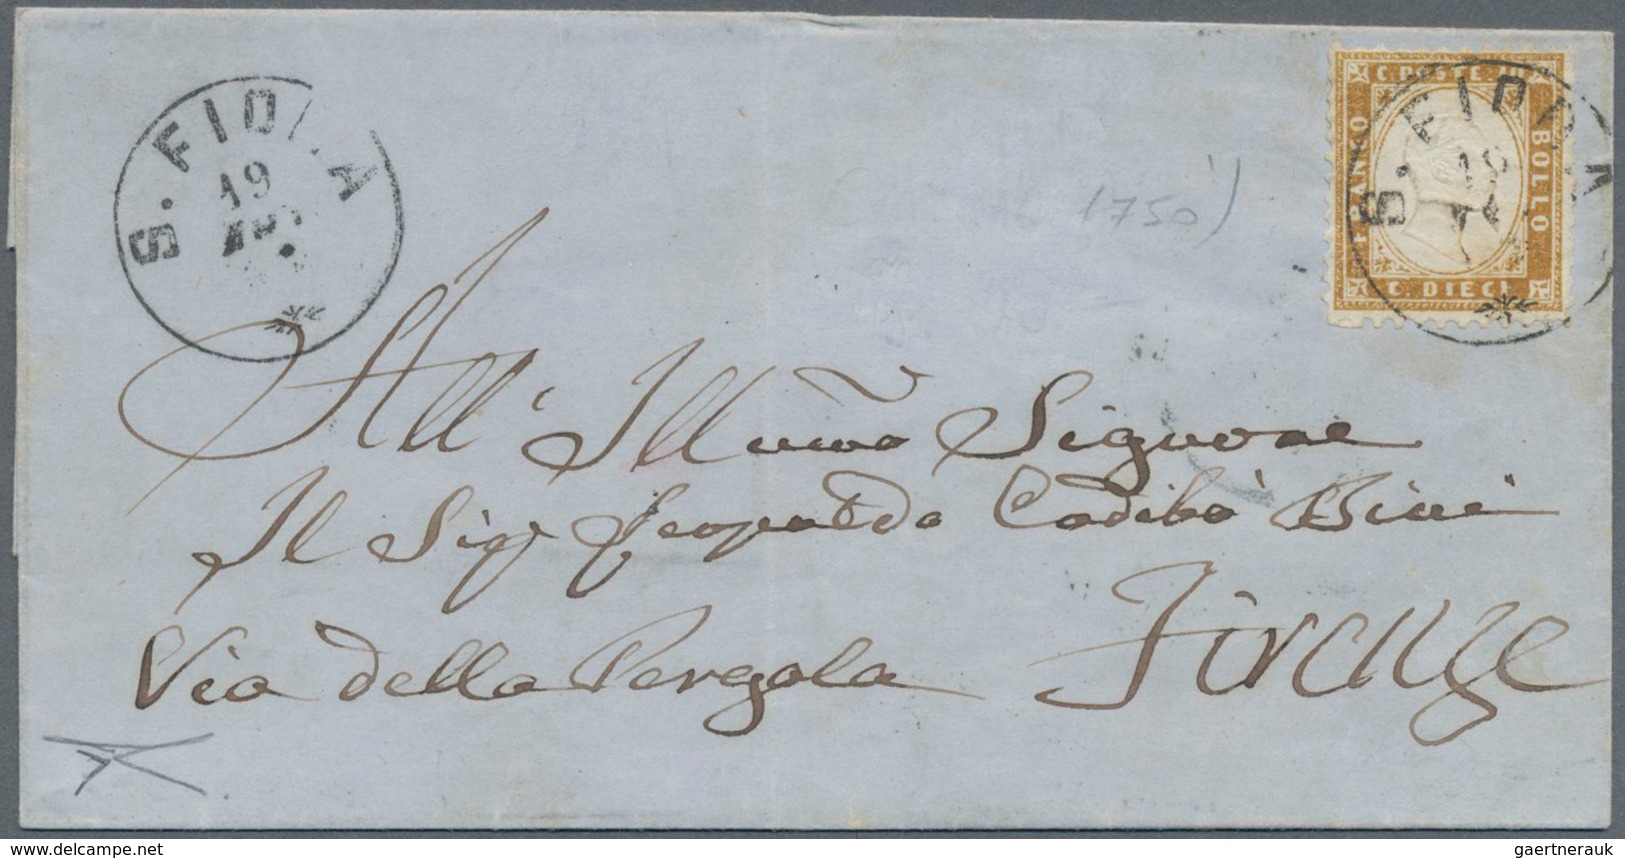 S. FIORA
19
C. POSTE
FRANCO
BOLLO
C. DIECI
S. FIORA
1750)
All' Illumo Signore
Il Sigr Leopoldo Cadibò Bini
Via della Pergola Firenze
www.delcampe.net
gaertnerauk